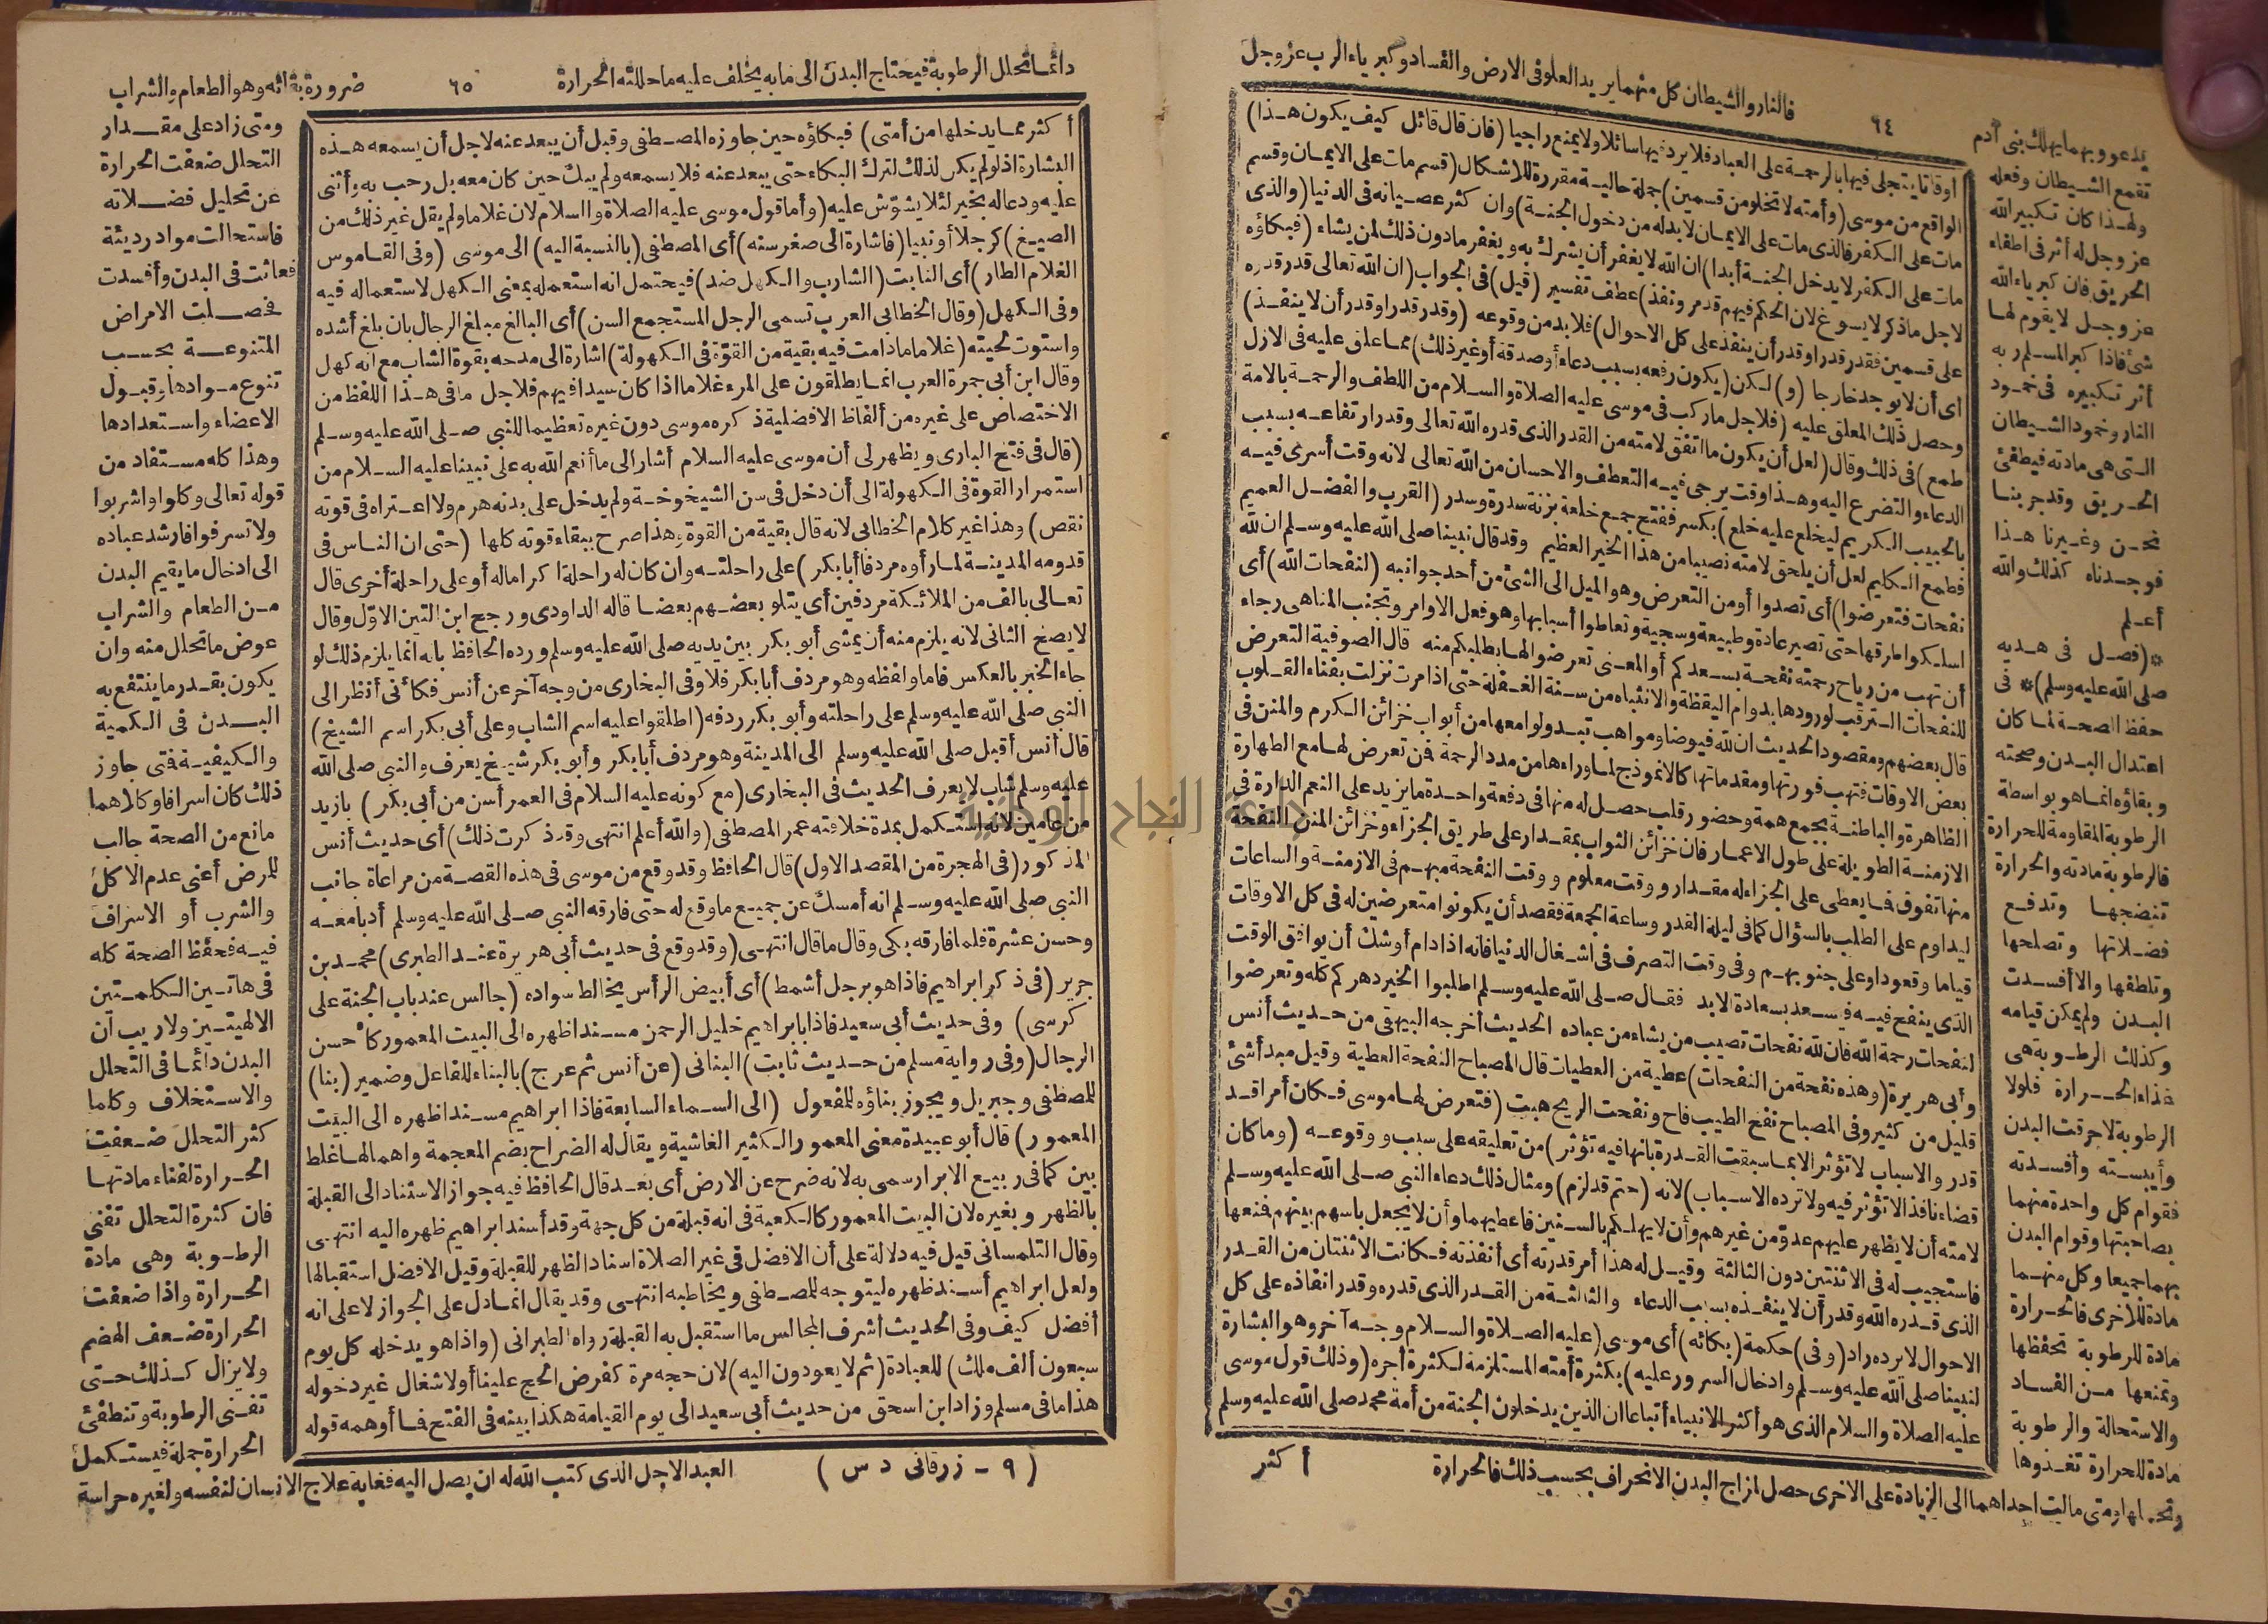 فالنار والشيطان كل منهما يريد العلو فى الارض والفساد وكبرياء الرب عز وجل
٦٤
يدعو وبهما يهلك بنى آدم
تقمع الشيطان وفعله
ولهذا كان تكبير الله
عز وجل له أثر فى اطفاء
الحريق فان كبرياء الله
عز وجل لا يقوم لها
شئ فاذا كبر المسلم ربه
أثر تكبيره فى خمود
النار وخمود الشيطان
التى هى مادته فيطفئ
الحريق وقد جربنا
نحن وغيرنا هذا
فوجدناه كذلك والله
أعلم
*(فصل فى هديه
صلى الله عليه وسلم)* فى
حفظ الصحة لما كان
اعتدال البدن وصحته
وبقاؤه انما هو بواسطة
الرطوبة المقاومة للحرارة
فالرطوبة مادته والحرارة
تنضجها وتدفع
فضلاتها وتصلحها
وتلطفها والا أفسدت
البدن ولم يمكن قيامه
وكذلك الرطوبة هى
غذاء الحرارة فلولا
الرطوبة لاحرقت البدن
وأيبسته وأفسدته
فقوام كل واحدة منهما
بصاحبتها وقوام البدن
بهما جميعا وكل منهما
مادة للاخرى فالحرارة
مادة للرطوبة تحفظها
وتمنعها من الفساد
والاستحالة والرطوبة
مادة للحرارة تغذوها
وتحملها ومتى مالت احداهما الى الزيادة على الاخرى حصل لمزاج البدن الانحراف بحسب ذلك فالحرارة
أوقاتا يتجلى فيها بالرحمة على العباد فلا يرد فيها سائلا ولا يمنع راجيا (فان قال قائل كيف يكون هذا)
الواقع من موسى (وأمته لا تخلو من قسمين) جملة حالية مقررة للاشكال (قسم مات على الايمان وقسم
مات على الكفر فالذى مات على الايمان لا بد له من دخول الجنة) وان كثر عصيانه فى الدنيا (والذى
مات على الكفر لا يدخل الجنة أبدا) ان الله لا يغفر أن يشرك به ويغفر ما دون ذلك لمن يشاء (فبكاؤه
لاجل ما ذكر لا يسوغ لان الحكم فيهم قد مر ونفذ) عطف تفسير (قيل) فى الجواب (ان الله تعالى قدر قدره
على قسمين فقدر قدرا وقدر أن ينفذ على كل الاحوال) فلا بد من وقوعه (وقدر قدرا وقدر أن لا ينفذ)
اى أن لا يوجد خارجا (و) لكن (يكون رفعه بسبب دعاء أو صدقة أو غير ذلك) مما علق عليه فى الازل
وحصل ذلك المعلق عليه (فلاجل ما ركب فى موسى عليه الصلاة والسلام من اللطف والرحمة بالامة
طمع) فى ذلك وقال (لعل أن يكون ما اتفق لامته من القدر الذى قدره الله تعالى وقدر ارتفاعه بسبب
الدعاء والتضرع اليه وهذا وقت يرجى فيه التعطف والاحسان من الله تعالى لانه وقت أسرى فيه
بالحبيب الكريم ليخلع عليه خلع) بكسر ففتح جمع خلعة بزنة سدرة وسدر (القرب والفضل العميم
فطمع الكليم لعل أن يلحق لامته نصيبا من هذا الخير العظيم وقد قال نبينا صلى الله عليه وسلم ان لله
نفحات فتعرضوا) أى تصدوا أو من التعرض وهو الميل الى الشئ من أحد جوانبه (لنفحات الله) أى
اسلكوا طرقها حتى تصير عادة وطبيعة وسجية وتعاطوا أسبابها وهو فعل الاوامر وتجنب المناهى رجاء
أن تهب من رياح رحمته نفحة بسعدكم أو المعنى تعرضوا لها بطلبكم منه قال الصوفية التعرض
للنفحات الترقب لورودها بدوام اليقظة والانتباه من سنة الغفلة حتى اذا مرت نزلت بفناء القلوب
قال بعضهم ومقصود الحديث ان لله فيوضا ومواهب تبدو لوامعها من أبواب خزائن الكرم والمنن فى
بعض الاوقات فتهب فورتها ومقدماتها كالانموذج لما وراءها من مدد الرحمة فمن تعرض لها مع الطهارة
الظاهرة والباطنة بجمع همة وحضور قلب حصل له منها فى دفعة واحدة ما يزيد على النعم الدارة فى
الازمنة الطويلة على طول الاعمار فان خزائن الثواب بمقدار على طريق الجزاء وخزائن المنن النفحة
منها تفوق فما يعطى على الجزاء له مقدار ووقت معلوم ووقت النفحة مبهم فى الازمنة والساعات
ليداوم على الطلب بالسؤال كما فى ليلة القدر وساعة الجمعة فقصد أن يكونوا متعرضين له فى كل الاوقات
قياما وقعودا وعلى جنوبهم وفى وقت التصرف فى اشغال الدنيا فانه اذا دام أوشك أن يوافق الوقت
الذى ينفح فيه فيسعد بسعادة الابد فقال صلى الله عليه وسلم اطلبوا الخير دهركم كله وتعرضوا
لنفحات رحمة الله فان لله نفحات تصيب من يشاء من عباده الحديث أخرجه البيهقى من حديث أنس
وأبى هريرة (وهذه نفحة من النفحات) عطية من العطيات قال المصباح النفحة العطية وقيل مبدأ شئ
قليل من كثير وفى المصباح نفح الطيب فاح ونفحت الريح هبت (فتعرض لها موسى فكان أمر اقد
قدر والاسباب لا تؤثر الا بما سبقت القدرة بانها فيه تؤثر) من تعليقه على سبب ووقوعه (وما كان
قضاء نافذا لا تؤثر فيه ولا ترده الاسباب) لانه (حتم قد لزم) ومثال ذلك دعاء النبى صلى الله عليه وسلم
لامته أن لا يظهر عليهم عدوّ من غيرهم وأن لا يهلكهم بالسنين فاعطيهما وأن لا يجعل باسهم بينهم فمنعها
فاستجيب له فى الاثنتين دون الثالثة وقيل له هذا أمر قدرته أى أنفذته فكانت الاثنتان من القدر
الذى قدره الله وقدر أن لا ينفذه بسبب الدعاء والثالثة من القدر الذى قدره وقدر انفاذه على كل
الاحوال لا يرده راد (وفى) حكمة (بكائه) أى موسى (عليه الصلاة والسلام وجه آخر وهو البشارة
لنبينا صلى الله عليه وسلم وادخال السرور عليه) بكثرة أمته المستلزمة لكثرة أجره (وذلك قول موسى
عليه الصلاة والسلام الذى هو أكثر الانبياء أتباعا ان الذين يدخلون الجنة من أمة محمد صلى الله عليه وسلم
أكثر
دائما تحلل الرطوبة فيحتاج البدن الى ما به يخلف عليه ما حللته الحرارة
٦٥
ضرورة بقائه وهو الطعام والشراب
أكثر مما يدخلها من أمتى) فبكاؤه حين جاوزه المصطفى وقبل أن يبعد عنه لاجل أن يسمعه هذه
البشارة اذ لو لم يكن لذلك لترك البكاء حتى يبعد عنه فلا يسمعه ولم يبك حين كان معه بل رحب به وأثنى
عليه ودعا له بخير لئلا يشوّش عليه (وأما قول موسى عليه الصلاة والسلام لان غلاما ولم يقل غير ذلك من
الصيغ) كرجلا أو نبيا (فاشارة الى صغر سنه) أى المصطفى (بالنسبة اليه) الى موسى (وفى القاموس
الغلام الطار) أى النابت (الشارب والكهل ضد) فيحتمل انه استعمله بمعنى الكهل لاستعماله فيه
وفى الكهل (وقال الخطابى العرب تسمى الرجل المستجمع السن) أى البالغ مبلغ الرجال بان بلغ أشده
واستوت لحيته (غلاما ما دامت فيه بقية من القوّة فى الكهولة) اشارة الى مدحه بقوة الشاب مع انه كهل
وقال ابن أبى جمرة العرب انما يطلقون على المرء غلاما اذا كان سيدا فيهم فلاجل ما فى هذا اللفظ من
الاختصاص على غيره من ألفاظ الافضلية ذكره موسى دون غيره تعظيما للنبى صلى الله عليه وسلم
(قال فى فتح البارى ويظهر لى أن موسى عليه السلام أشار الى ما أنعم الله به على نبينا عليه السلام من
استمرار القوة فى الكهولة الى أن دخل فى سن الشيخوخة ولم يدخل على بدنه هرم ولا اعتراه فى قوته
نقص) وهذا غير كلام الخطابى لانه قال بقية من القوة وهذا صرح ببقاء قوته كلها (حتى ان الناس فى
قدومه المدينة لما رأوه مردفا أبا بكر) على راحلته وان كان له راحلة اكراما له أو على راحلة أخرى قال
تعالى بالف من الملائكة مردفين أى يتلو بعضهم بعضا قاله الداودى ورجح ابن التين الاوّل وقال
لا يصح الثانى لانه يلزم منه أن يمشى أبو بكر بين يديه صلى الله عليه وسلم ورده الحافظ بانه انما يلزم ذلك لو
جاء الخبر بالعكس فاما ولفظه وهو مردف أبا بكر فلا وفى البخارى من وجه آخر عن أنس فكأنى أنظر الى
النبى صلى الله عليه وسلم على راحلته وأبو بكر ردفه (اطلقوا عليه اسم الشاب وعلى أبى بكر اسم الشيخ)
قال أنس أقبل صلى الله عليه وسلم الى المدينة وهو مردف أبا بكر وأبو بكر شيخ يعرف والنبى صلى الله
عليه وسلم شاب لا يعرف الحديث فى البخارى (مع كونه عليه السلام فى العمر أسن من أبى بكر) بازيد
من عامين لانه استكمل بمدة خلافته عمر المصطفى (والله أعلم انتهى وقد ذكرت ذلك) أى حديث أنس
المذكور (فى الهجرة من المقصد الاول) قال الحافظ وقد وقع من موسى فى هذه القصة من مراعاة جانب
النبى صلى الله عليه وسلم انه أمسك عن جميع ما وقع له حتى فارقه النبى صلى الله عليه وسلم أدبا معه
وحسن عشرة فلما فارقه بكى وقال ما قال انتهى (وقد وقع فى حديث أبى هريرة عند الطبرى) محمد بن
جرير (فى ذكر ابراهيم فاذا هو برجل أشمط) أى أبيض الرأس يخالط سواده (جالس عند باب الجنة على
كرسى) وفى حديث أبى سعيد فاذا بابراهيم خليل الرحمن مسندا ظهره الى البيت المعمور كأحسن
الرجال (وفى رواية مسلم من حديث ثابت) البنانى (عن أنس ثم عرج) بالبناء للفاعل وضمير (بنا)
للمصطفى وجبريل ويجوز بناؤه للمفعول (الى السماء السابعة فاذا ابراهيم مسندا ظهره الى البيت
المعمور) قال أبو عبيدة معنى المعمور الكثير الغاشية ويقال له الضراح بضم المعجمة واهمالها غلط
بين كما فى ربيع الابرار سمى به لانه ضرح عن الارض أى بعد قال الحافظ فيه جواز الاستناد الى القبلة
بالظهر وبغيره لان البيت المعمور كالكعبة فى انه قبلة من كل جهة وقد أسند ابراهيم ظهره اليه انتهى
وقال التلمسانى قيل فيه دلالة على أن الافضل فى غير الصلاة اسناد الظهر للقبلة وقيل الافضل استقبالها
ولعل ابراهيم أسند ظهره ليتوجه للمصطفى ويخاطبه انتهى وقد يقال انما دل على الجواز لا على انه
أفضل كيف وفى الحديث أشرف المجالس ما استقبل به القبلة رواه الطبرانى (واذا هو يدخله كل يوم
سبعون ألف ملك) للعبادة (ثم لا يعودون اليه) لان حجه مرة كفرض الحج علينا أو لاشغال غير دخوله
هذا ما فى مسلم وزاد ابن اسحق من حديث أبى سعيد الى يوم القيامة هكذا بينه فى الفتح فما أوهمه قوله
(٩ - زرقانى د س)
ومتى زاد على مقدار
التحلل ضعفت الحرارة
عن تحليل فضلاته
فاستحالت مواد رديئة
فعاثت فى البدن وأفسدت
فحصلت الامراض
المتنوعة بحسب
تنوع موادها وقبول
الاعضاء واستعدادها
وهذا كله مستفاد من
قوله تعالى وكلوا واشربوا
ولا تسرفوا فارشد عباده
الى ادخال ما يقيم البدن
من الطعام والشراب
عوض ما تحلل منه وان
يكون بقدر ما ينتفع به
البدن فى الكمية
والكيفية فمتى جاوز
ذلك كان اسرافا وكلاهما
مانع من الصحة جالب
للمرض أعنى عدم الاكل
والشرب أو الاسراف
فيه فحفظ الصحة كله
فى هاتين الكلمتين
الالهيتين ولا ريب أن
البدن دائما فى التحلل
والاستخلاف وكلما
كثر التحلل ضعفت
الحرارة لفناء مادتها
فان كثرة التحلل تفنى
الرطوبة وهى مادة
الحرارة واذا ضعفت
الحرارة ضعف الهضم
ولا يزال كذلك حتى
تفنى الرطوبة وتنطفئ
الحرارة جملة فيستكمل
العبد الاجل الذى كتب الله له ان يصل اليه فغاية علاج الانسان لنفسه ولغيره حراسة
جامعة النجاح الوطنية